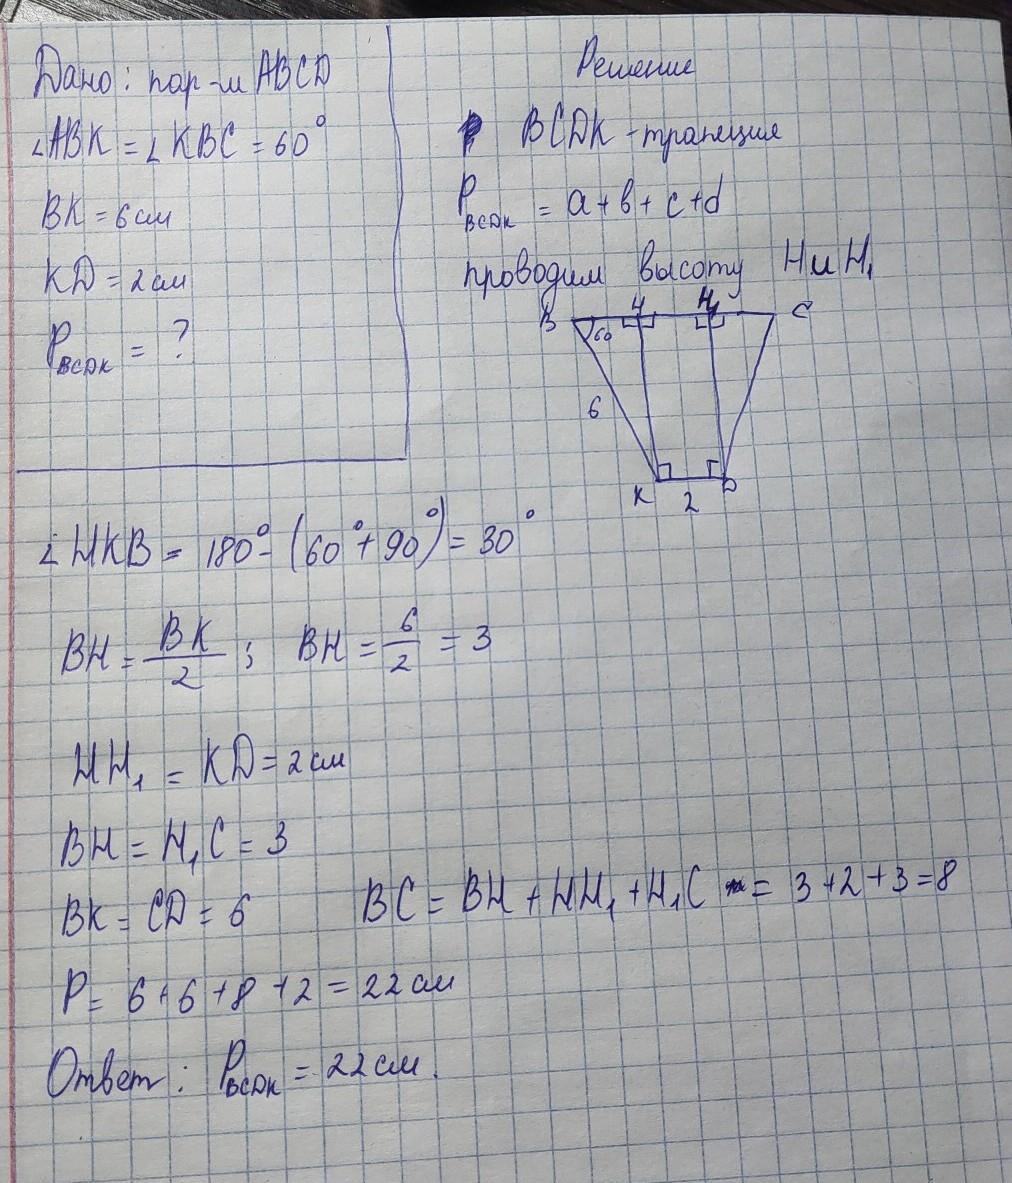 Дано: пар-м ABCD
∠ABK = ∠KBC = 60°
BK = 6 см
KD = 2 см
P_BCDK = ?
Решение
BCDK - трапеция
P_BCDK = a + b + c + d
проводим высоту H и H₁
B H H₁ C
60
6
K 2 D
∠HKB = 180° - (60° + 90°) = 30°
BH = BK/2 ; BH = 6/2 = 3
HH₁ = KD = 2 см
BH = H₁C = 3
BK = CD = 6 BC = BH + HH₁ + H₁C = 3 + 2 + 3 = 8
P = 6 + 6 + 8 + 2 = 22 см
Ответ: P_BCDK = 22 см.